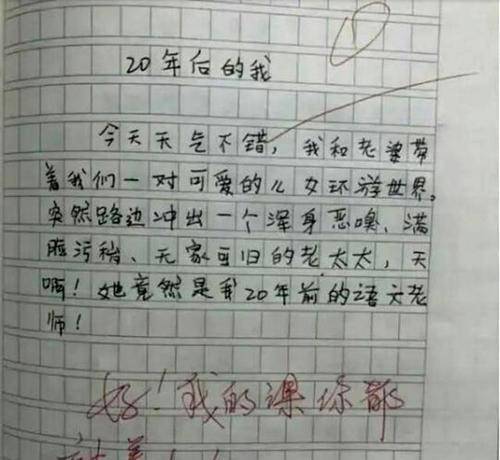 20年后的我
今天天气不错，我和老婆带
着我们一对可爱的儿女环游世界，
突然路边冲出一个浑身恶嗅、满
脸污秽、无家可归的老太太，天
啊！她竟然是我20年前的语文老
师！
好！我的课你都